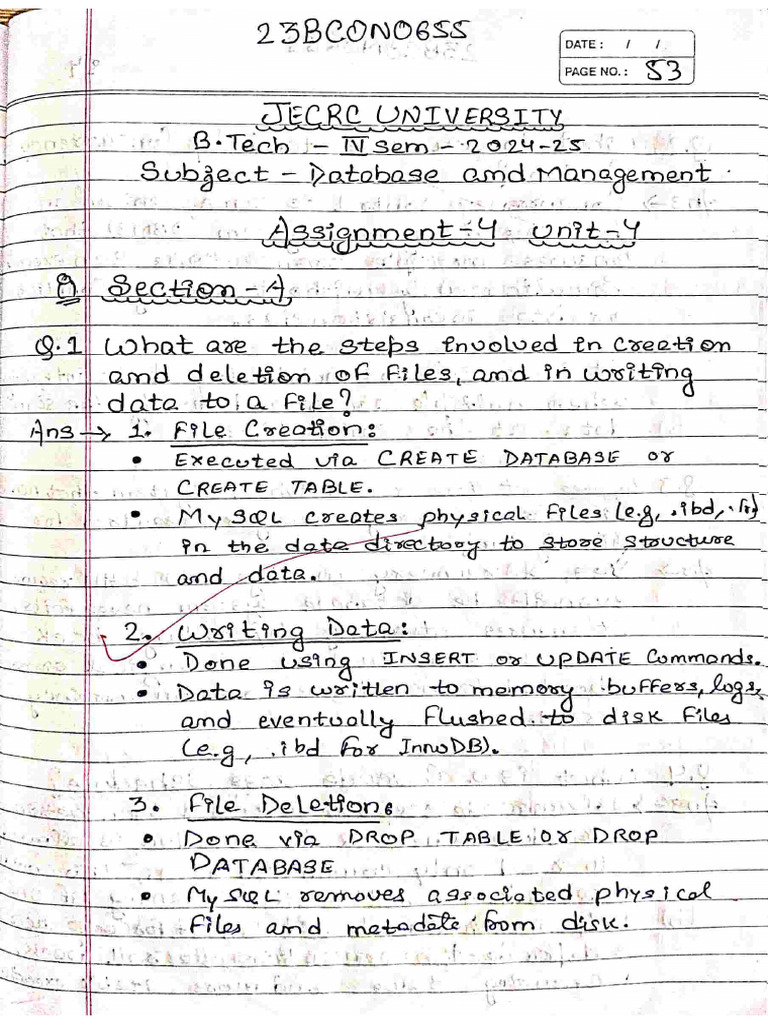 23BCON0655
DATE: / /
PAGE NO.: 53
JECRC UNIVERSITY
B.Tech - IV Sem - 2024-25
Subject - Database and Management
Assignment-4 Unit-4
Section-A
Q.1 What are the steps involved in creation
and deletion of files, and in writing
data to a file?
Ans → 1. File Creation:
• Executed via CREATE DATABASE or
CREATE TABLE.
• MySQL creates physical files (e.g, .ibd,
in the data directory to store structure
and data.
2. Writing Data:
• Done using INSERT or UPDATE Commands.
• Data is written to memory buffers, logs,
and eventually flushed to disk files
(e.g, .ibd for InnoDB).
3. File Deletion:
• Done via DROP TABLE or DROP
DATABASE
• MySQL removes associated physical
files and metadate from disk.